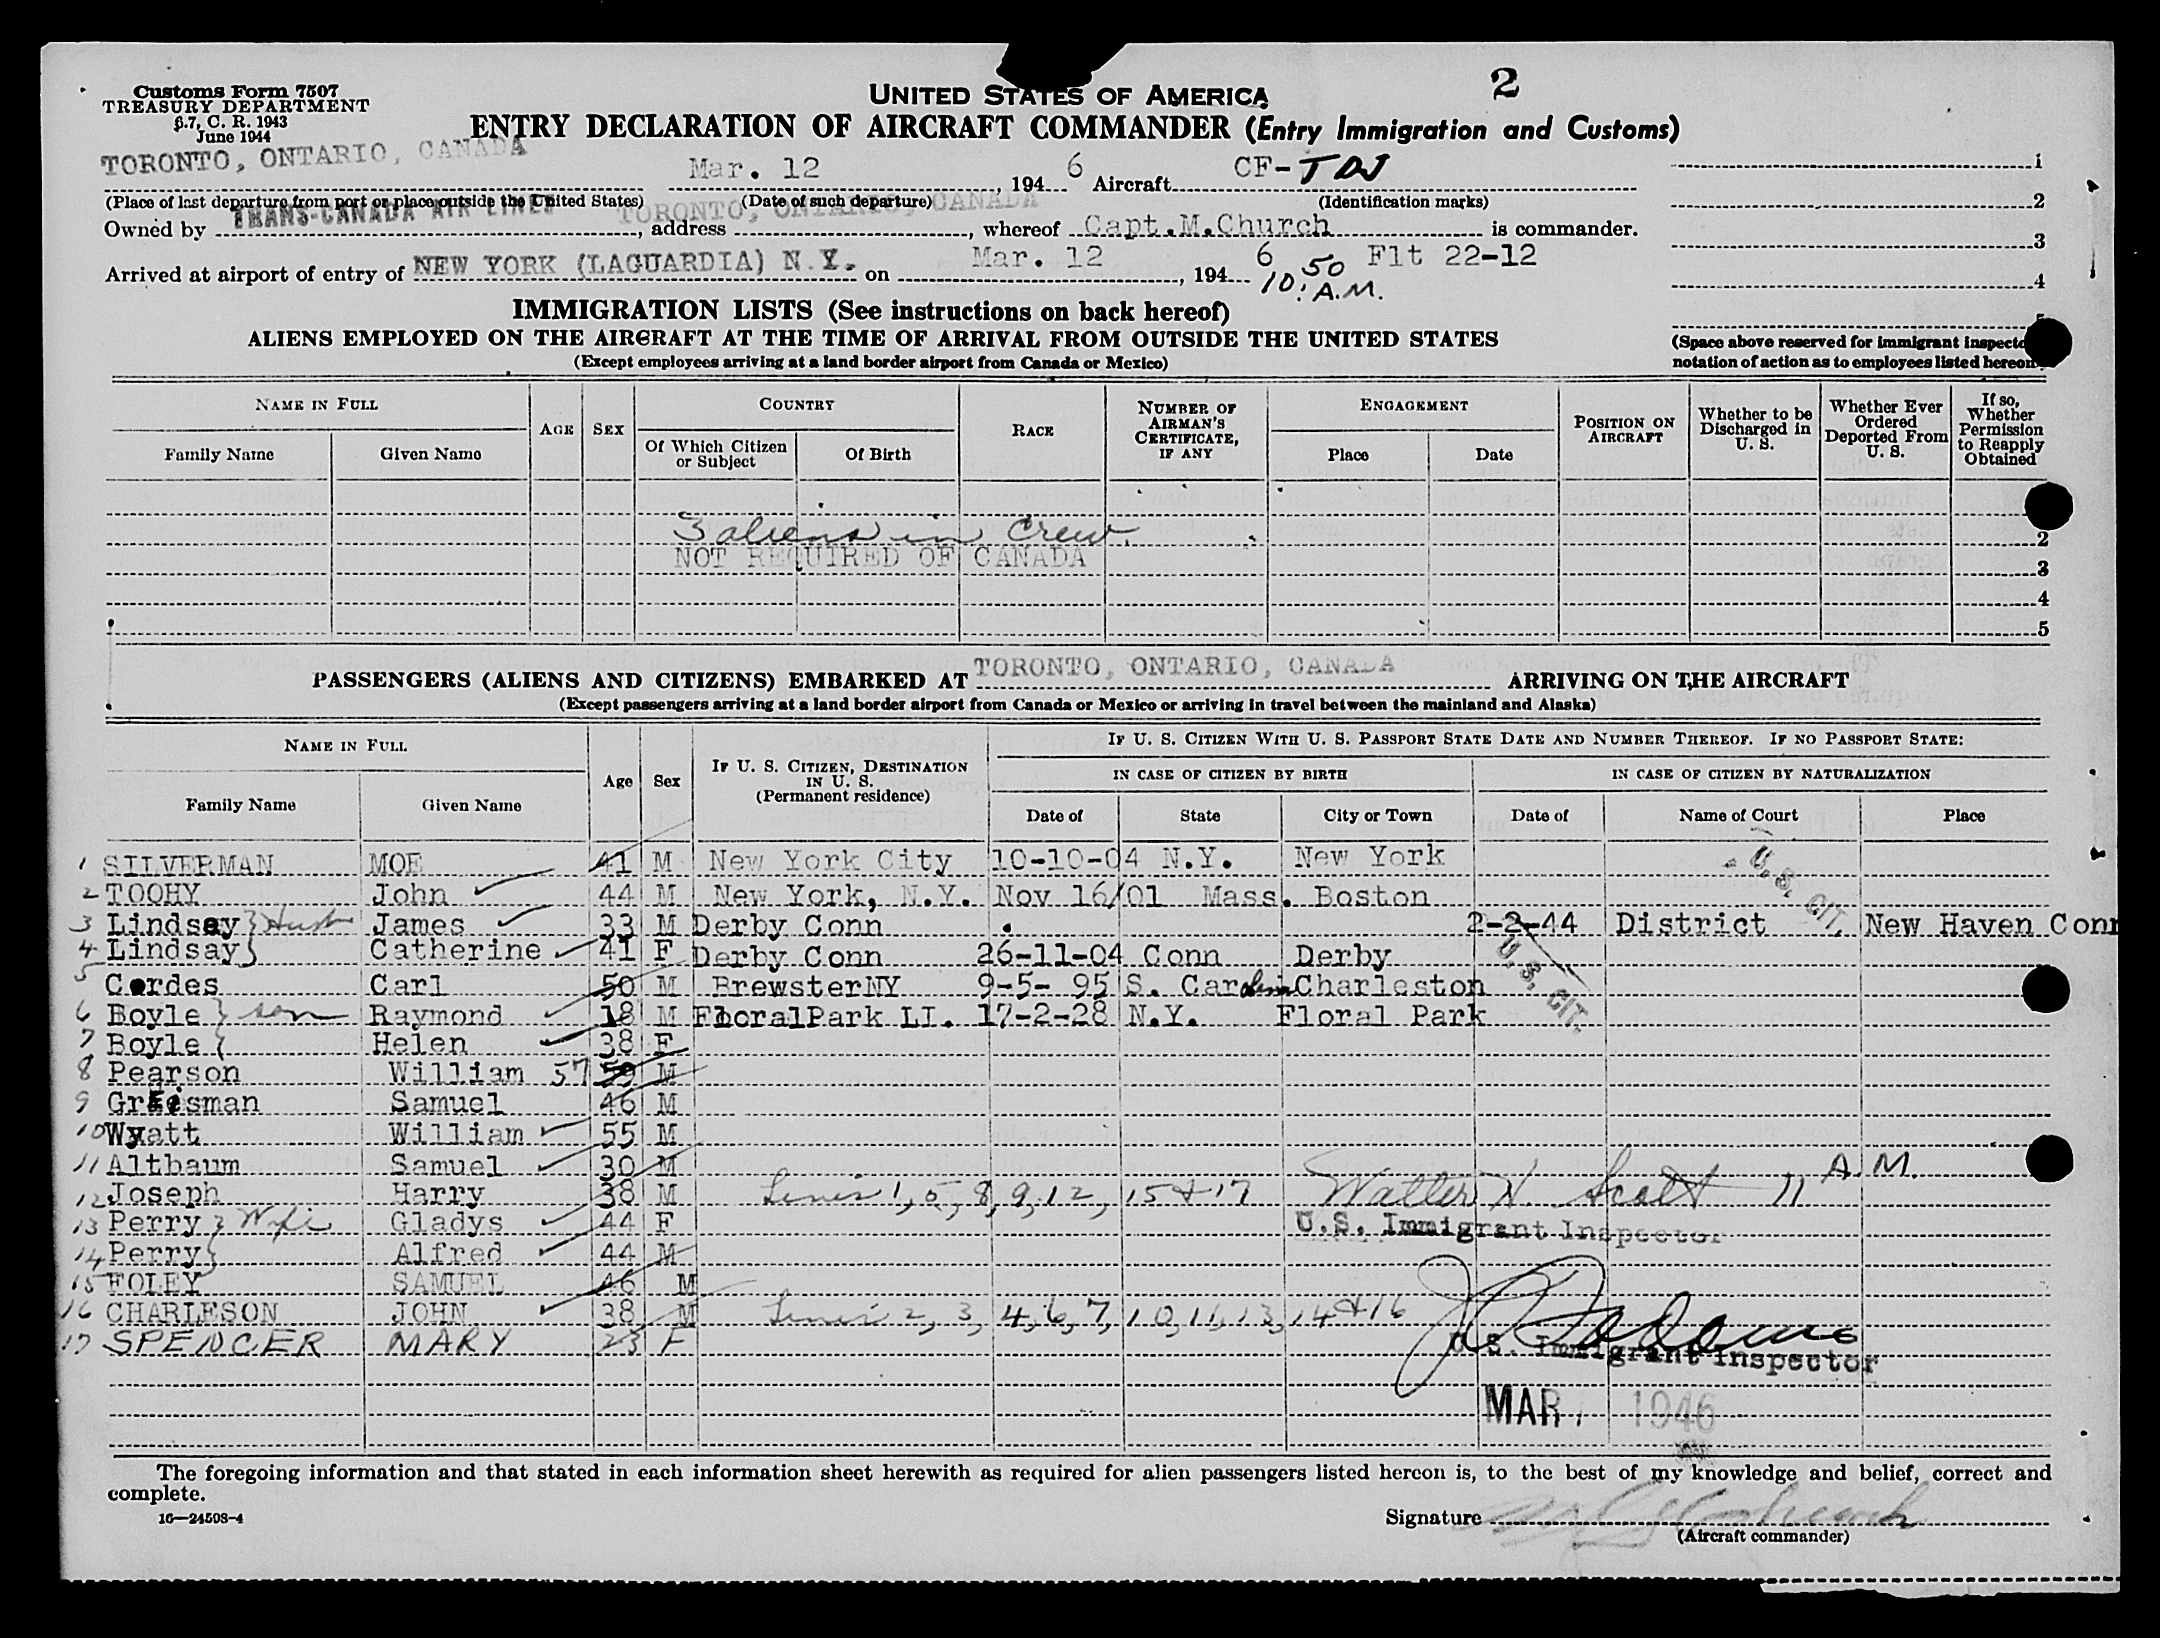 Customs Form 7507
TREASURY DEPARTMENT
6.7, C. R. 1943
June 1944
2
UNITED STATES OF AMERICA
ENTRY DECLARATION OF AIRCRAFT COMMANDER (Entry Immigration and Customs)
TORONTO, ONTARIO, CANADA Mar. 12, 1946 Aircraft CF-TDJ
(Place of last departure from port or place outside the United States) (Date of such departure) (Identification marks)
Owned by TRANS-CANADA AIR LINES, address TORONTO, ONTARIO, CANADA, whereof Capt.M.Church is commander.
Arrived at airport of entry of NEW YORK (LAGUARDIA) N.Y. on Mar. 12, 1946 10:50 A.M. Flt 22-12
1
2
3
4
5
IMMIGRATION LISTS (See instructions on back hereof)
ALIENS EMPLOYED ON THE AIRCRAFT AT THE TIME OF ARRIVAL FROM OUTSIDE THE UNITED STATES
(Except employees arriving at a land border airport from Canada or Mexico)
(Space above reserved for immigrant inspecto
notation of action as to employees listed hereon
NAME IN FULL
Family Name
Given Name
AGE
SEX
COUNTRY
Of Which Citizen or Subject
Of Birth
RACE
NUMBER OF AIRMAN'S CERTIFICATE, IF ANY
ENGAGEMENT
Place
Date
POSITION ON AIRCRAFT
Whether to be Discharged in U. S.
Whether Ever Ordered Deported From U. S.
If so, Whether Permission to Reapply Obtained
3 aliens in Crew. 2
NOT REQUIRED OF CANADA 3
4
5
PASSENGERS (ALIENS AND CITIZENS) EMBARKED AT TORONTO, ONTARIO, CANADA ARRIVING ON THE AIRCRAFT
(Except passengers arriving at a land border airport from Canada or Mexico or arriving in travel between the mainland and Alaska)
NAME IN FULL
Family Name
Given Name
Age
Sex
IF U. S. CITIZEN, DESTINATION IN U. S.
(Permanent residence)
IF U. S. CITIZEN WITH U. S. PASSPORT STATE DATE AND NUMBER THEREOF. IF NO PASSPORT STATE:
IN CASE OF CITIZEN BY BIRTH
Date of
State
City or Town
IN CASE OF CITIZEN BY NATURALIZATION
Date of
Name of Court
Place
1 SILVERMAN MOE 41 M New York City 10-10-04 N.Y. New York U. S. CIT.
2 TOOHY John 44 M New York, N.Y. Nov 16/01 Mass. Boston
3 Lindsay } Hust James 33 M Derby Conn 2-2-44 District New Haven Conn
4 Lindsay } Catherine 41 F Derby Conn 26-11-04 Conn Derby U. S. CIT.
5 Cordes Carl 50 M BrewsterNY 9-5- 95 S. Carolina Charleston
6 Boyle } son Raymond 18 M FloralPark LI. 17-2-28 N.Y. Floral Park
7 Boyle { Helen 38 F
8 Pearson William 57 59 M
9 Greisman Samuel 46 M
10 Wyatt William 55 M
11 Altbaum Samuel 30 M
12 Joseph Harry 38 M Lines 1, 5, 8, 9, 12, 15 & 17 Walter N. Scott 11 A.M.
13 Perry } Wife Gladys 44 F U.S. Immigrant Inspector
14 Perry } Alfred 44 M
15 FOLEY SAMUEL 46 M
16 CHARLESON JOHN 38 M Lines 2, 3, 4, 6, 7, 10, 11, 13, 14 & 16
17 SPENCER MARY 23 F
U.S. Immigrant Inspector
MAR 1946
The foregoing information and that stated in each information sheet herewith as required for alien passengers listed hereon is, to the best of my knowledge and belief, correct and
complete.
16—24598-4
Signature
(Aircraft commander)